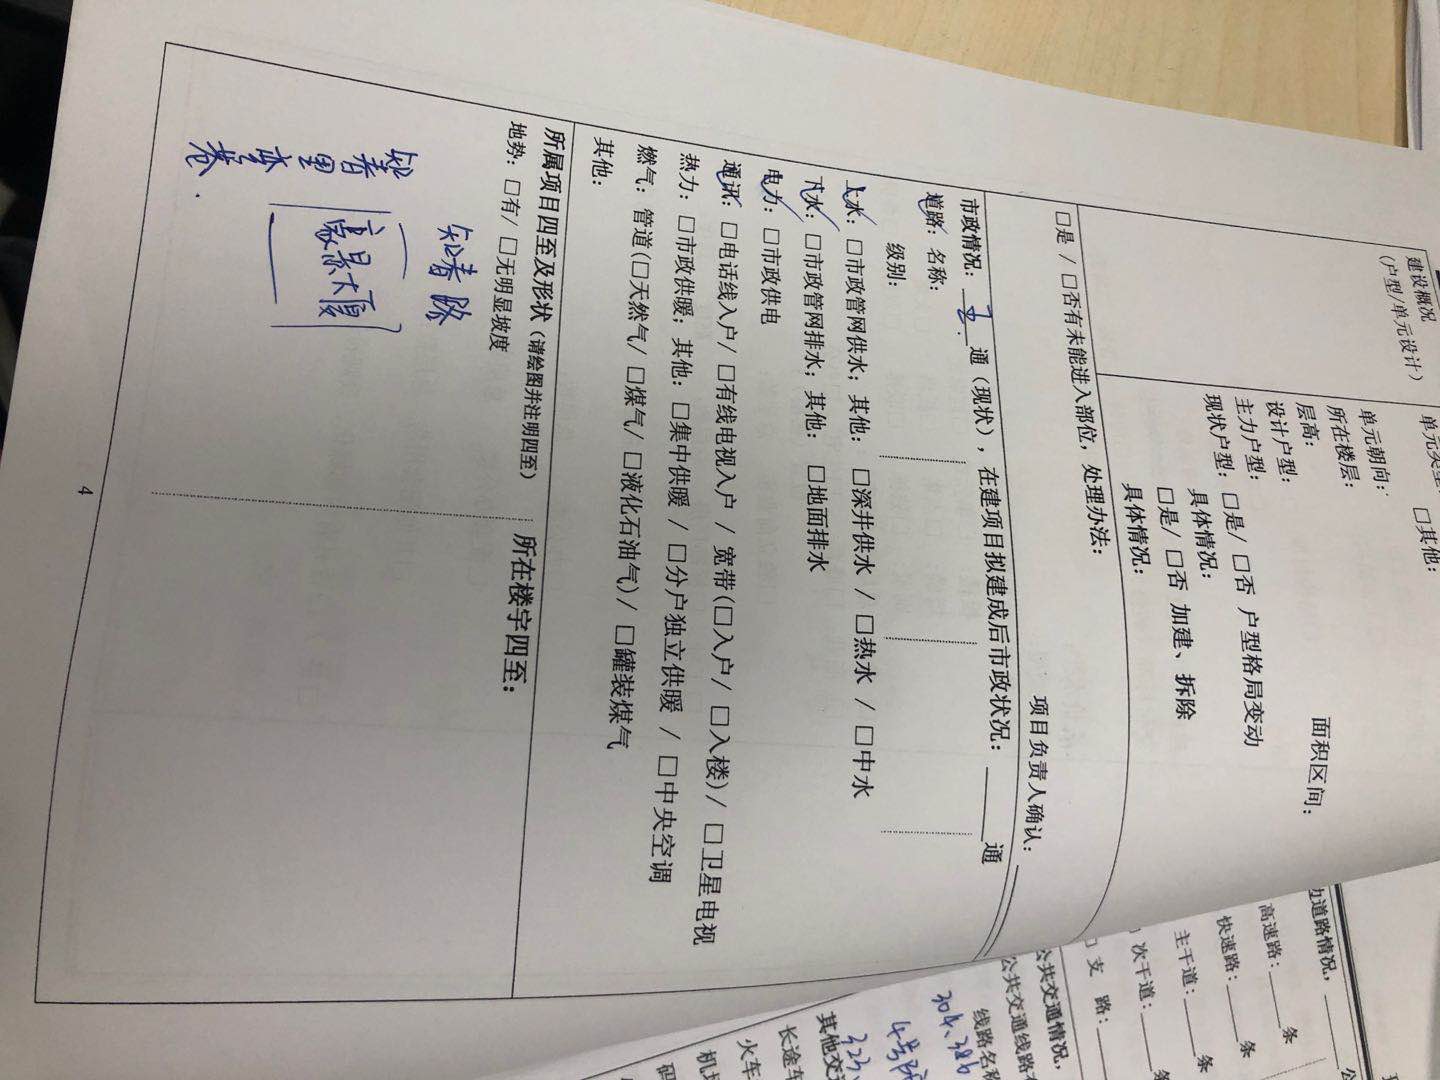 建设概况
(户型/单元设计)
单元类型
□其他:
单元朝向:
所在楼层:
层高:
面积区间:
设计户型:
主力户型:
现状户型: □是/ □否 户型格局变动
具体情况:
□是/ □否 加建、拆除
具体情况:
□是 / □否有未能进入部位, 处理办法:
项目负责人确认:
市政情况: 五 通 (现状), 在建项目拟建成后市政状况: 通
道路: 名称:
级别:
上水: □市政管网供水; 其他: □深井供水 / □热水 / □中水
下水: □市政管网排水; 其他: □地面排水
电力: □市政供电
通讯: □电话线入户/ □有线电视入户 / 宽带(□入户/ □入楼)/ □卫星电视
热力: □市政供暖; 其他: □集中供暖 / □分户独立供暖 / □中央空调
燃气: 管道(□天然气/ □煤气/ □液化石油气)/ □罐装煤气
其他:
所属项目四至及形状 (请绘图并注明四至)
所在楼宇四至:
地势: □有/ □无明显坡度
知春路
知春里
豪景大厦
4
边道路情况,
高速路: 条
快速路: 条
主干道: 条
□ 次干道: 条
□ 支 路: 条
公共交通情况,
公共交通线路
线路名称
304、386
4号
323、
其他交
长途车
火车
机
码